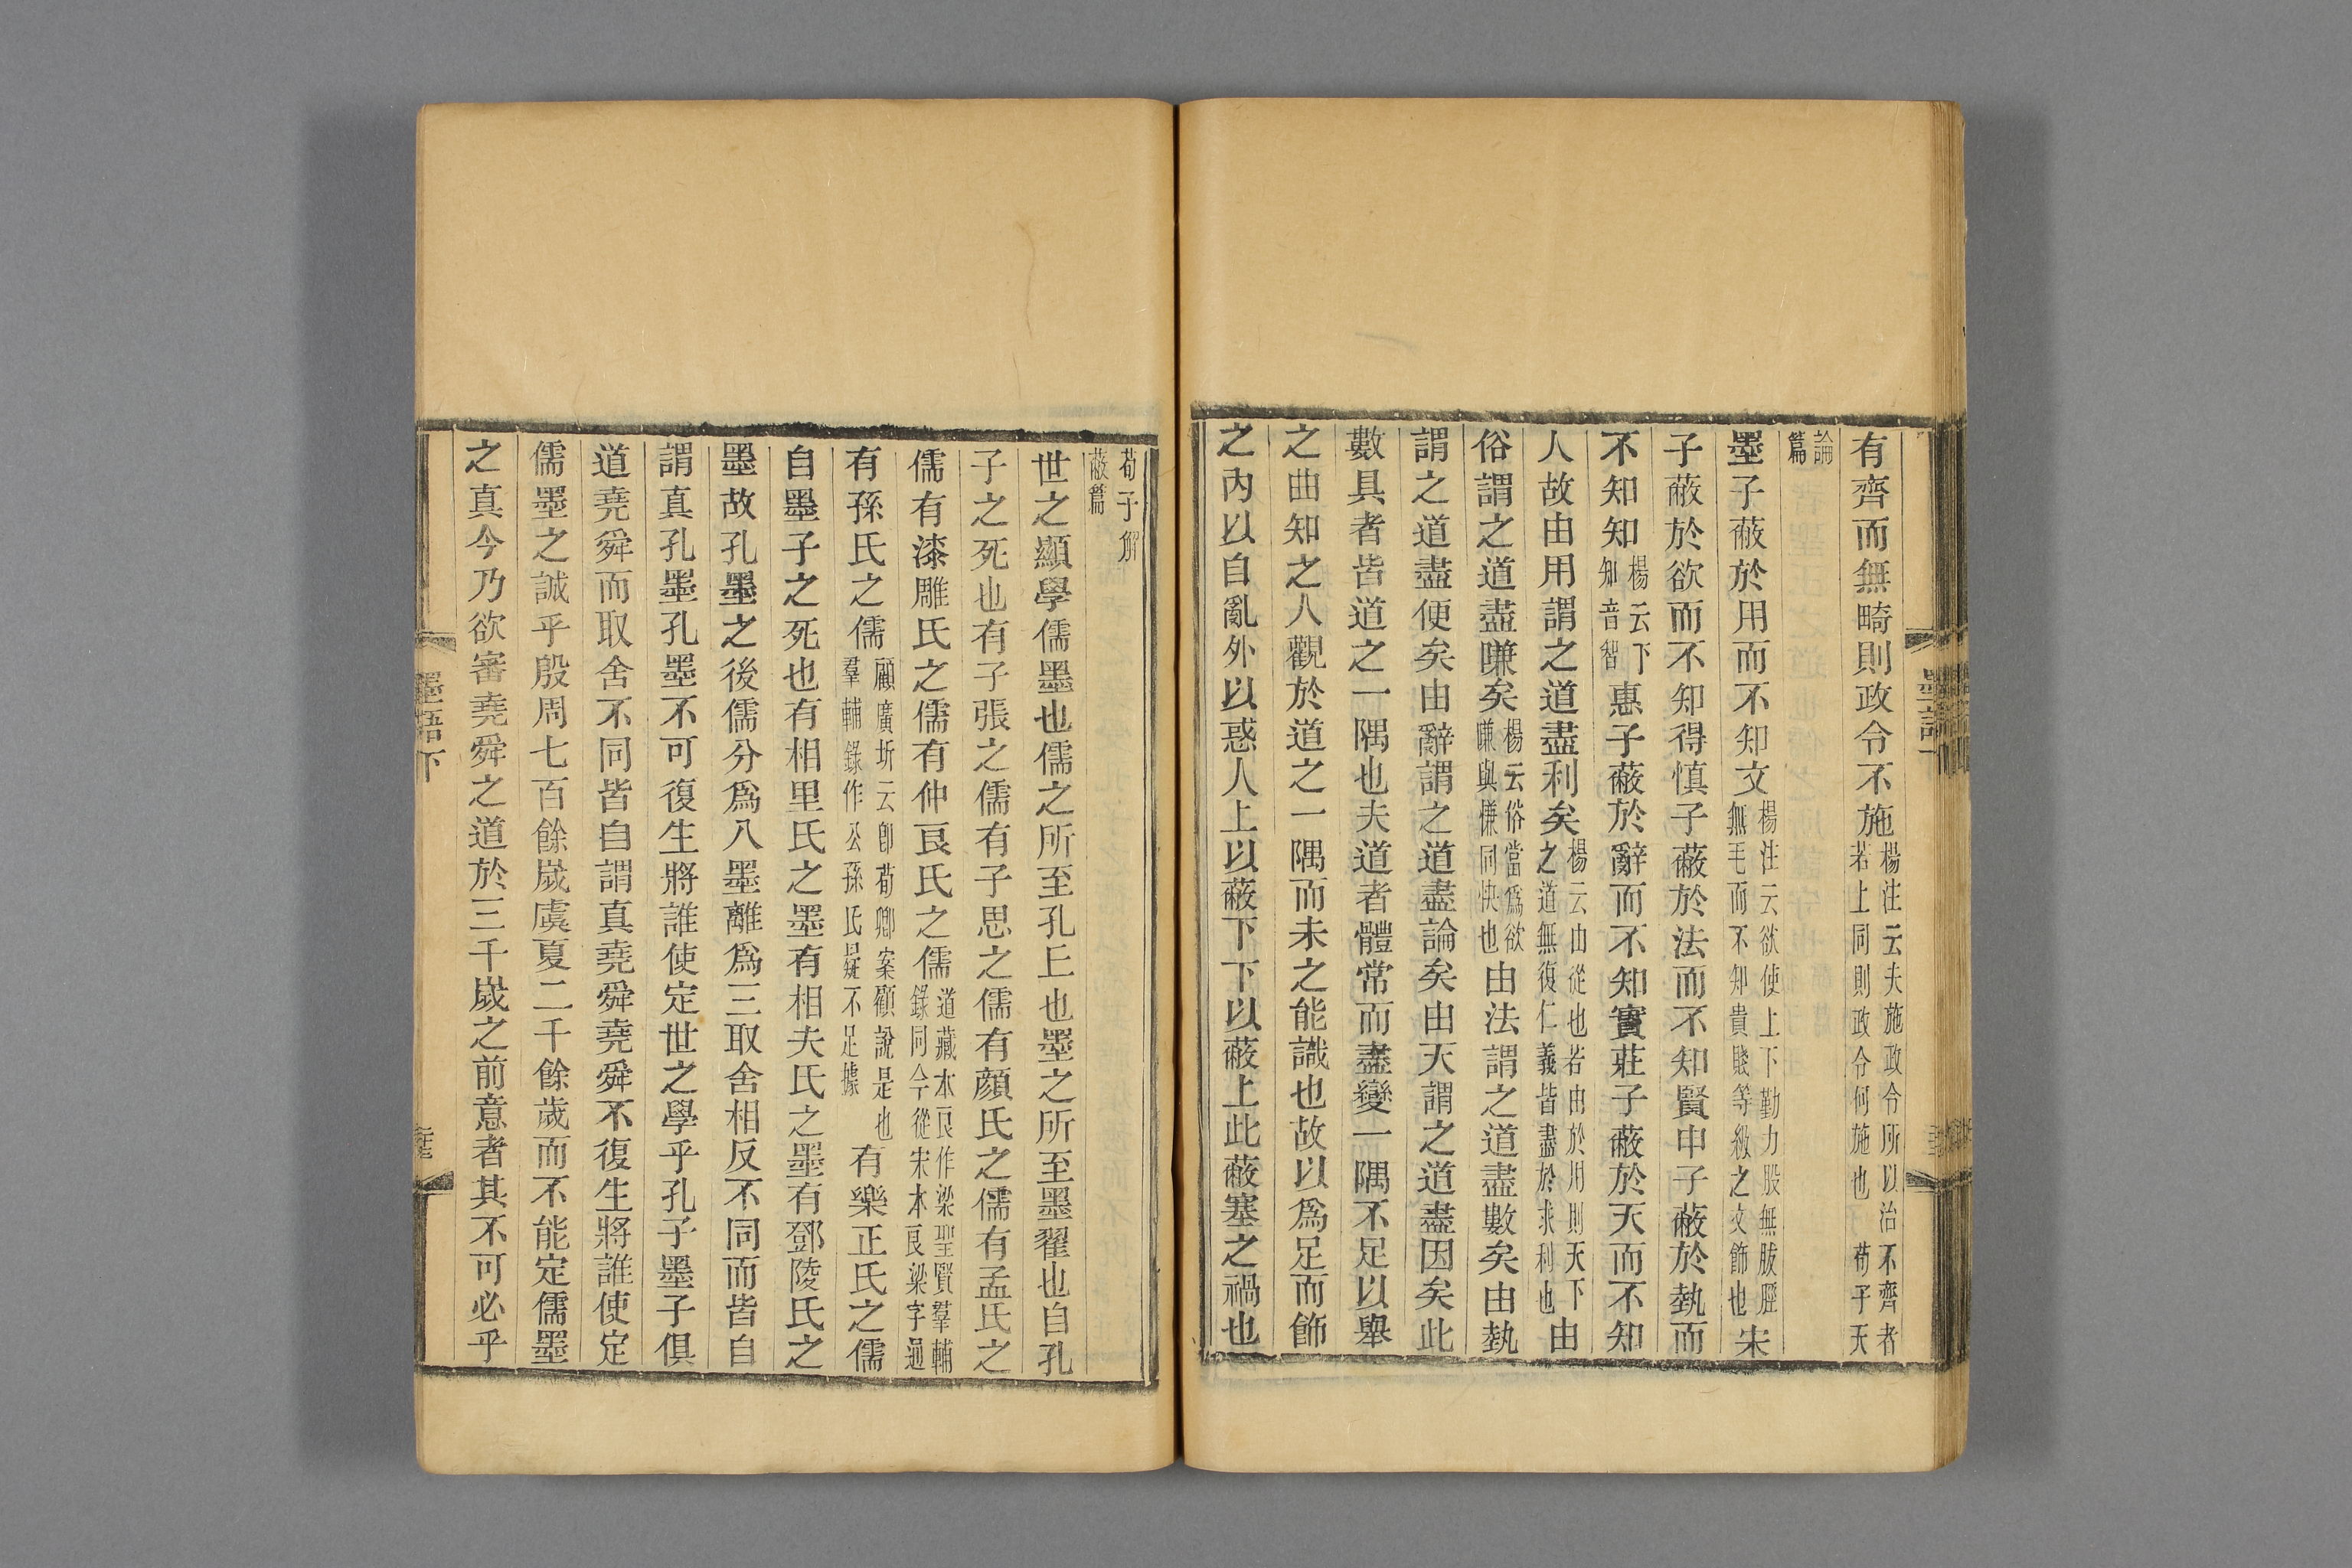 有齊而無畸則政令不施楊注云夫施政令所以治不齊者若上同則政令何施也荀子天
論篇
墨子蔽於用而不知文楊注云欲使上下勤力股無胈脛無毛而不知貴賤等級之文飾也宋
子蔽於欲而不知得慎子蔽於法而不知賢申子蔽於埶而
不知知楊云下知音智惠子蔽於辭而不知實莊子蔽於天而不知
人故由用謂之道盡利矣楊云由從也若由於用則天下之道無復仁義皆盡於求利也由
俗謂之道盡嗛矣楊云俗當爲欲嗛與慊同快也由法謂之道盡數矣由埶
謂之道盡便矣由辭謂之道盡論矣由天謂之道盡因矣此
數具者皆道之一隅也夫道者體常而盡變一隅不足以舉
之曲知之人觀於道之一隅而未之能識也故以爲足而飾
之內以自亂外以惑人上以蔽下下以蔽上此蔽塞之禍也
荀子解蔽篇
世之顯學儒墨也儒之所至孔丘也墨之所至墨翟也自孔
子之死也有子張之儒有子思之儒有顏氏之儒有孟氏之
儒有漆雕氏之儒有仲良氏之儒道藏本良作梁聖賢羣輔錄同今從宋本良梁字通
有孫氏之儒顧廣圻云卽荀卿案顧說是也羣輔錄作公孫氏疑不足據有樂正氏之儒
自墨子之死也有相里氏之墨有相夫氏之墨有鄧陵氏之
墨故孔墨之後儒分爲八墨離爲三取舍相反不同而皆自
謂真孔墨孔墨不可復生將誰使定世之學乎孔子墨子俱
道堯舜而取舍不同皆自謂真堯舜堯舜不復生將誰使定
儒墨之誠乎殷周七百餘歲虞夏二千餘歲而不能定儒墨
之真今乃欲審堯舜之道於三千歲之前意者其不可必乎
墨語下